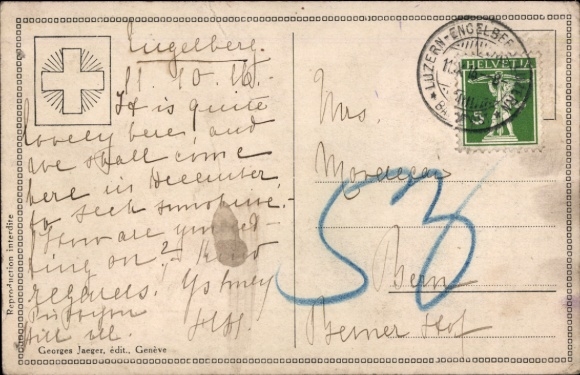 Engelberg.
11. 10. 16.-
It is quite
lovely here, and
we shall come
here in December
to seek sunshine.
How are you
ting on? Kind
regards.
still
Mrs.
Mordecai
Bern
Berner Hof
53
LUZERN-ENGELBE
HELVETIA
5
Reproduction interdite
Georges Jaeger, édit., Genève